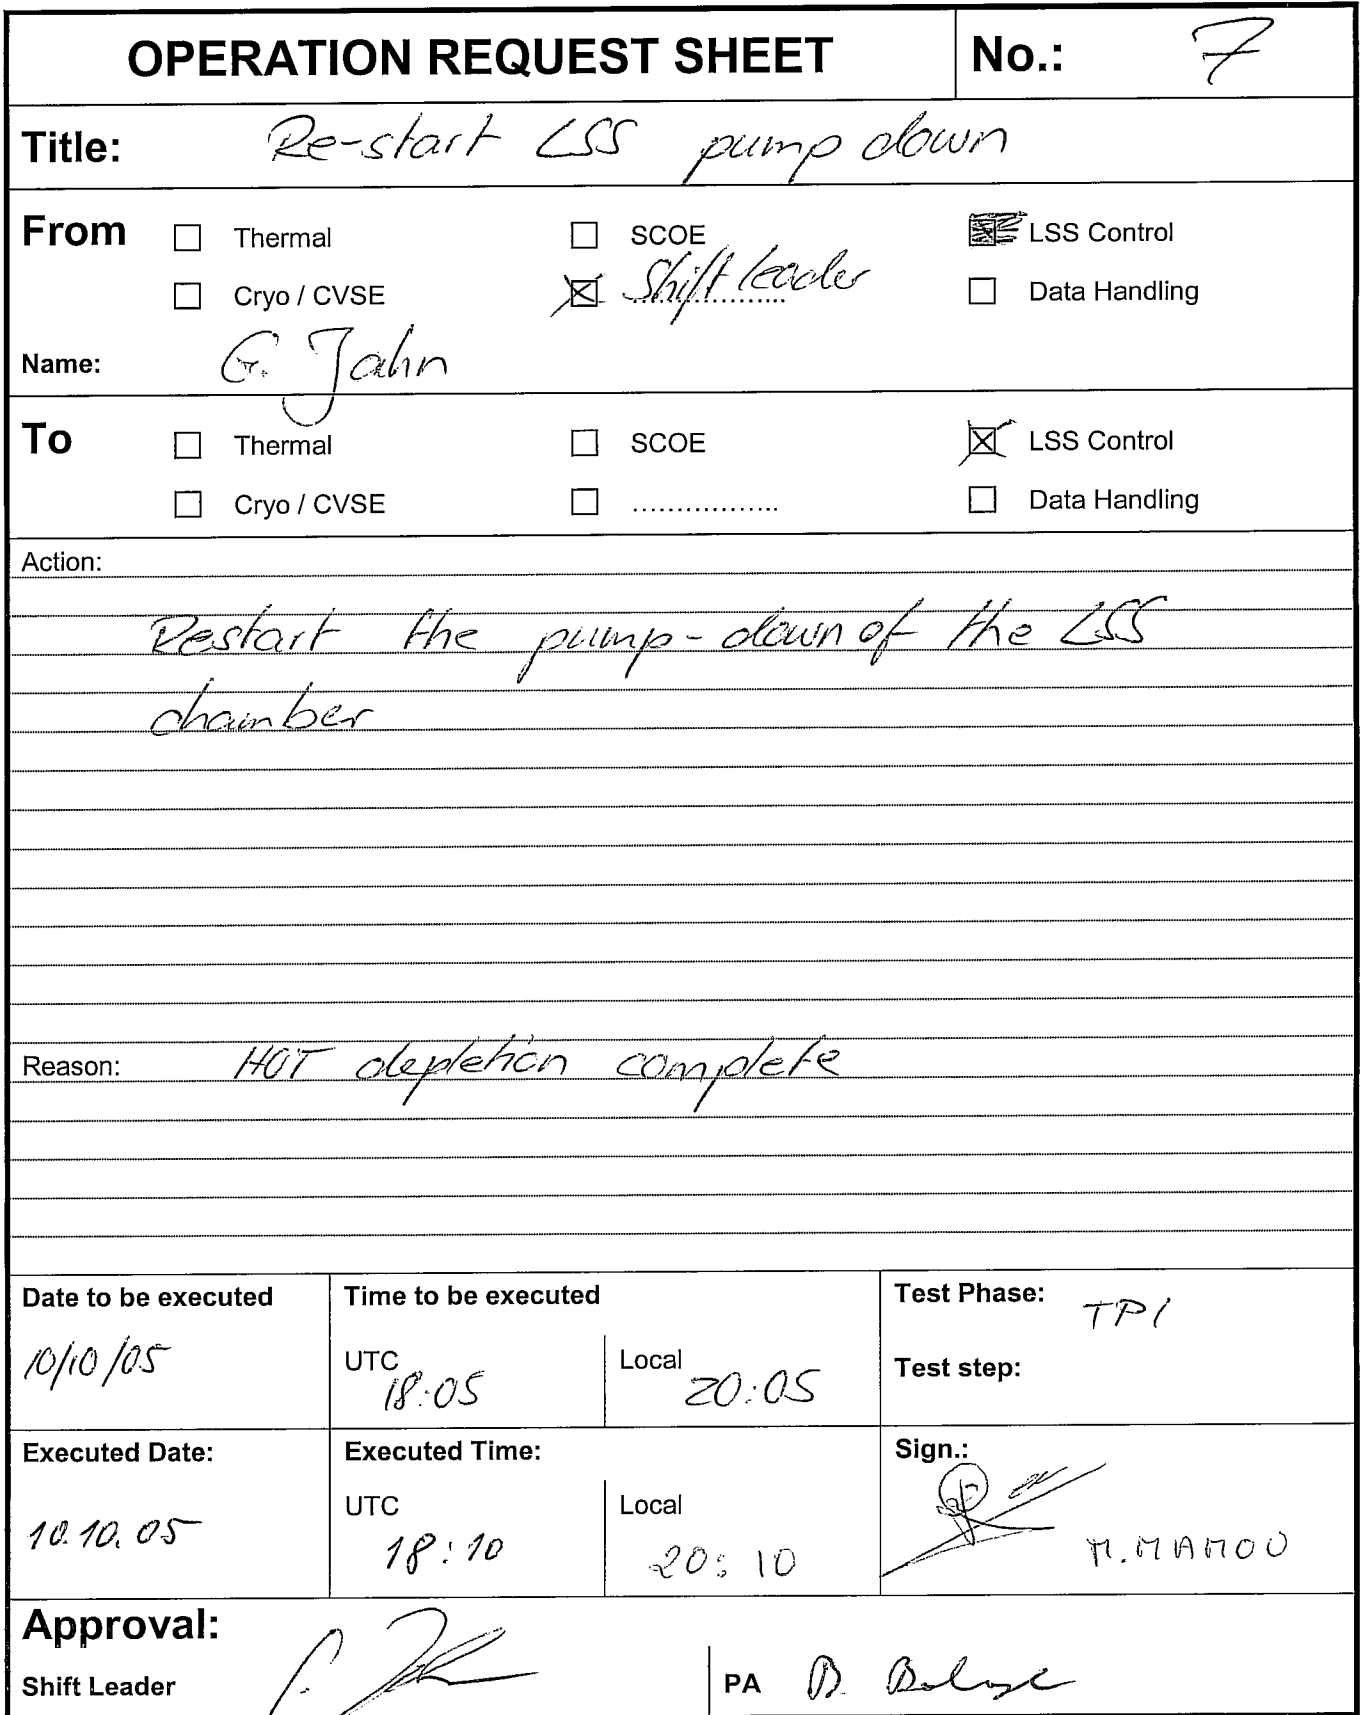 OPERATION REQUEST SHEET No.: 7
Title: Re-start LSS pump down
From Thermal SCOE LSS Control
Cryo / CVSE Shift leader Data Handling
Name: G. Jahn
To Thermal SCOE LSS Control
Cryo / CVSE .................. Data Handling
Action:
Restart the pump-down of the LSS
chamber
Reason: HOT depletion complete
Date to be executed Time to be executed Test Phase: TP1
10/10/05 UTC 18:05 Local 20:05 Test step:
Executed Date: Executed Time: Sign.:
10.10.05 UTC 18:10 Local 20:10 M. MAMOU
Approval:
Shift Leader PA B.